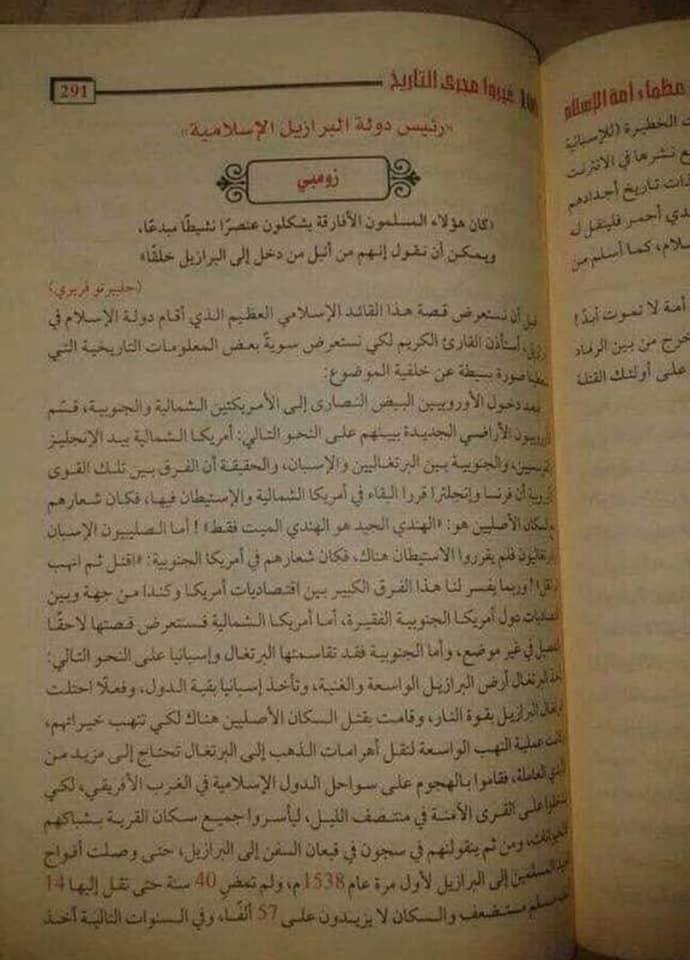 291
100 غيروا مجرى التاريخ
«رئيس دولة البرازيل الإسلامية»
زومبي
«كان هؤلاء المسلمون الأفارقة يشكلون عنصرًا نشيطًا مبدعًا،
ويمكن أن نقول إنهم من أنبل من دخل إلى البرازيل خلقًا»
(جلبيرتو فريري)
قبل أن نستعرض قصة هذا القائد الإسلامي العظيم الذي أقام دولة الإسلام في
أستأذن القارئ الكريم لكي نستعرض سويةً بعض المعلومات التاريخية التي
صورة بسيطة عن خلفية الموضوع:
بعد دخول الأوروبيين البيض النصارى إلى الأمريكتين الشمالية والجنوبية، قسّم
الأراضي الجديدة بينهم على النحو التالي: أمريكا الشمالية بيد الإنجليز
والجنوبية بين البرتغاليين والإسبان، والحقيقة أن الفرق بين تلك القوى
أن فرنسا وإنجلترا قررا البقاء في أمريكا الشمالية والإستيطان فيها، فكان شعارهم
الأصليين هو: «الهندي الجيد هو الهندي الميت فقط»! أما الصليبيون الإسبان
فلم يقرروا الاستيطان هناك، فكان شعارهم في أمريكا الجنوبية: «اقتل ثم انهب
وربما يفسر لنا هذا الفرق الكبير بين اقتصاديات أمريكا وكندا من جهة وبين
دول أمريكا الجنوبية الفقيرة، أما أمريكا الشمالية فسنتعرض قصتها لاحقًا
في غير موضع، وأما الجنوبية فقد تقاسمتها البرتغال وإسبانيا على النحو التالي:
البرتغال أرض البرازيل الواسعة والغنية، وتأخذ إسبانيا بقية الدول، وفعلًا احتلت
البرازيل بقوة النار، وقامت بقتل السكان الأصليين هناك لكي تنهب خيراتهم،
عملية النهب الواسعة لنقل أهرامات الذهب إلى البرتغال تحتاج إلى مزيد من
العاملة، فقاموا بالهجوم على سواحل الدول الإسلامية في الغرب الأفريقي، لكي
على القرى الآمنة في منتصف الليل، ليأسروا جميع سكان القرية بشباكهم
ومن ثم ينقولنهم في سجون في قيعان السفن إلى البرازيل، حتى وصلت أفواج
المسلمين إلى البرازيل لأول مرة عام 1538م، ولم تمضِ 40 سنة حتى نقل إليها 14
مسلم مستضعف والسكان لا يزيدون على 57 ألفًا، وفي السنوات التالية أخذ
عظماء أمة الإسلام
الخطيرة (للإسبانية
نشرها في الانترنت
تاريخ أجدادهم
أحمر فلينقل
كما أسلم من
أمة لا تموت أبدًا!
من بين الرماد
على أولئك القتلة